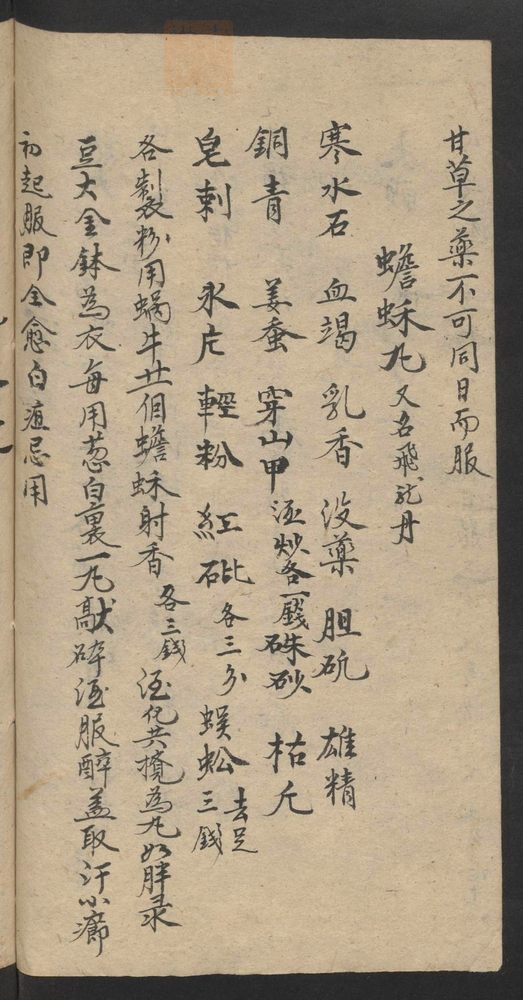 甘草之藥不可同日而服
蟾蘇丸 又名飛龙丹
寒水石 血竭 乳香 没藥 胆矾 雄精
銅青 姜蚕 穿山甲 酒炒各一錢 硃砂 枯凡
皂刺 氷片 輕粉 紅砒 各三分 蜈蚣 去足三錢
各製粉用蝸牛廿一個蟾蘇射香 各三錢 酒化共攪為丸如胖录
豆大金鉢為衣每用葱白裏一丸碎酒服醉盖取汗小
初起服即全愈白疽忌用